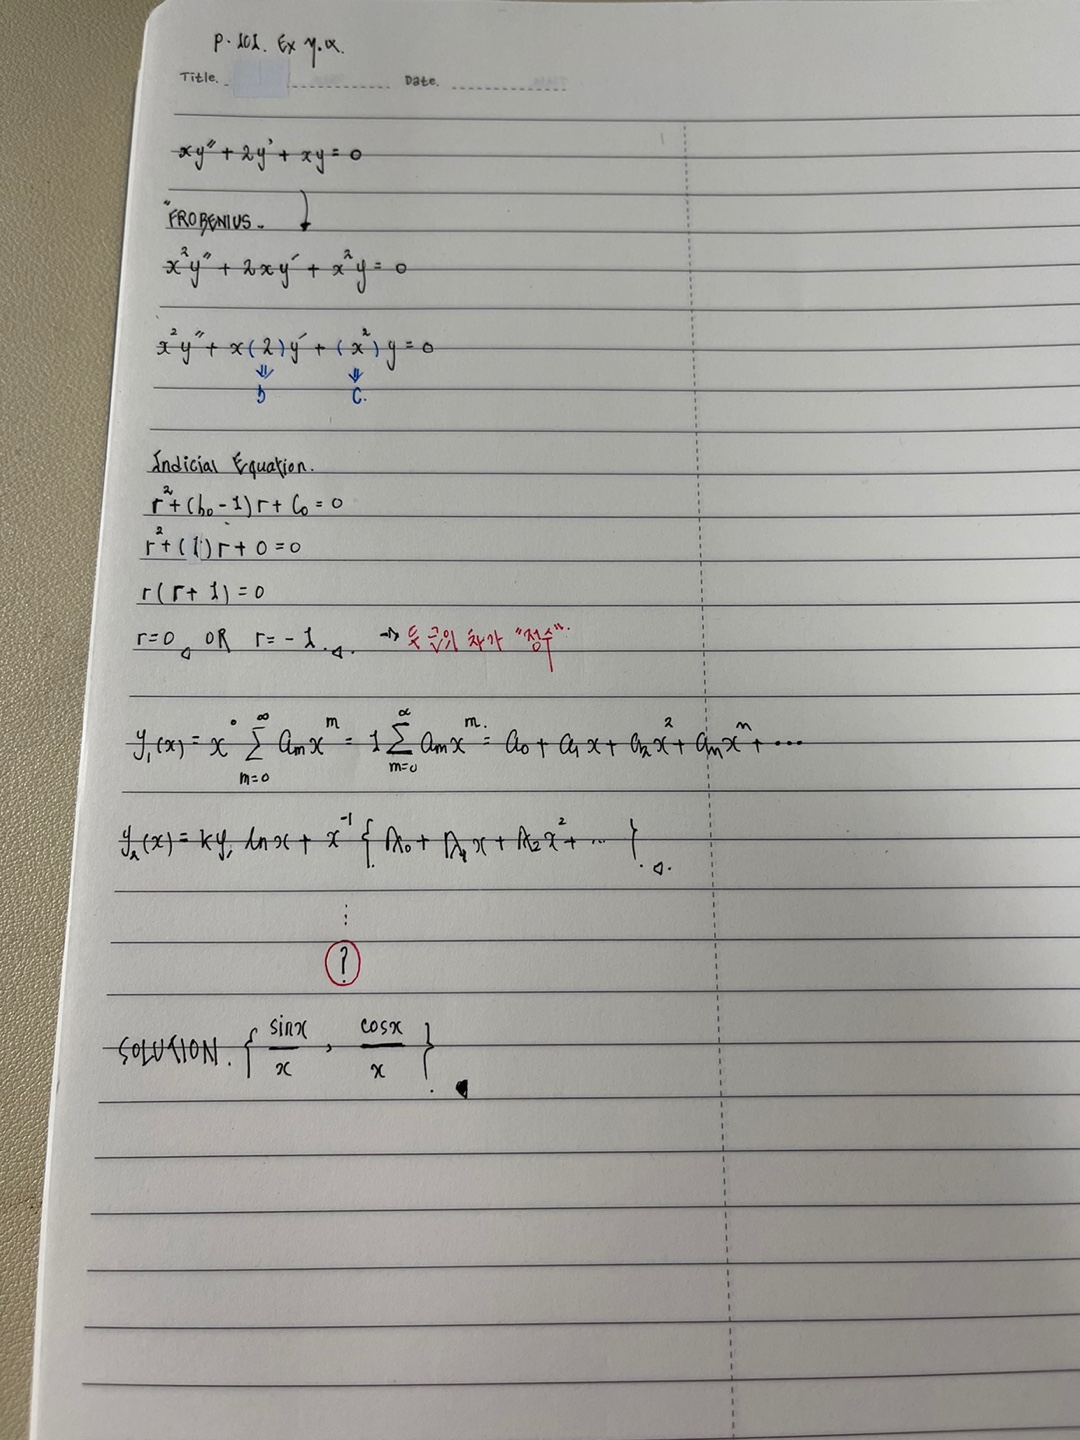 P. 101. Ex
Title. Date.
xy" + 2y' + xy = 0
"FROBENIUS. ↓
x²y" + 2xy' + x²y = 0
x²y" + x(2)y' + (x²)y = 0
⇓ ⇓
b C.
Indicial Equation.
r² + (b₀ - 1)r + C₀ = 0
r² + (1)r + 0 = 0
r(r + 1) = 0
r = 0 OR r = -1. → 두 근의 차가 "정수".
y₁(x) = x⁰ ∑ₘ₌₀^∞ aₘxᵐ = 1 ∑ₘ₌₀^∞ aₘxᵐ = a₀ + a₁x + a₂x² + aₘxᵐ + ⋯
y₂(x) = ky₁ lnx + x⁻¹ { A₀ + A₁x + A₂x² + ⋯ }.
⋮
?
SOLUTION. { sinx/x , cosx/x }.